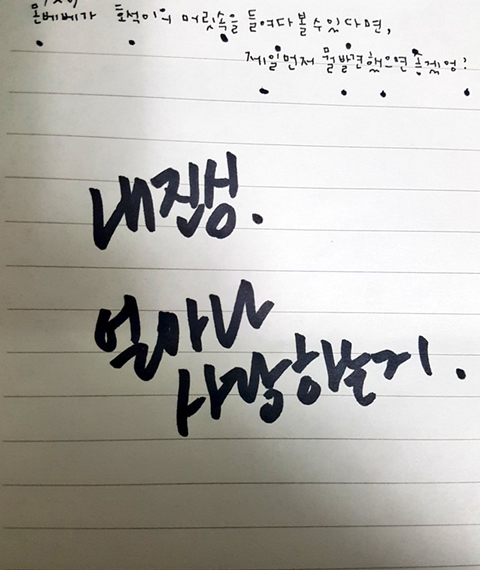 몬베베가 호석이의 머릿속을 들여다볼수있다면,
제일먼저 뭘발견했으면 좋겠엉?
내진심.
얼마나
사랑하는지.